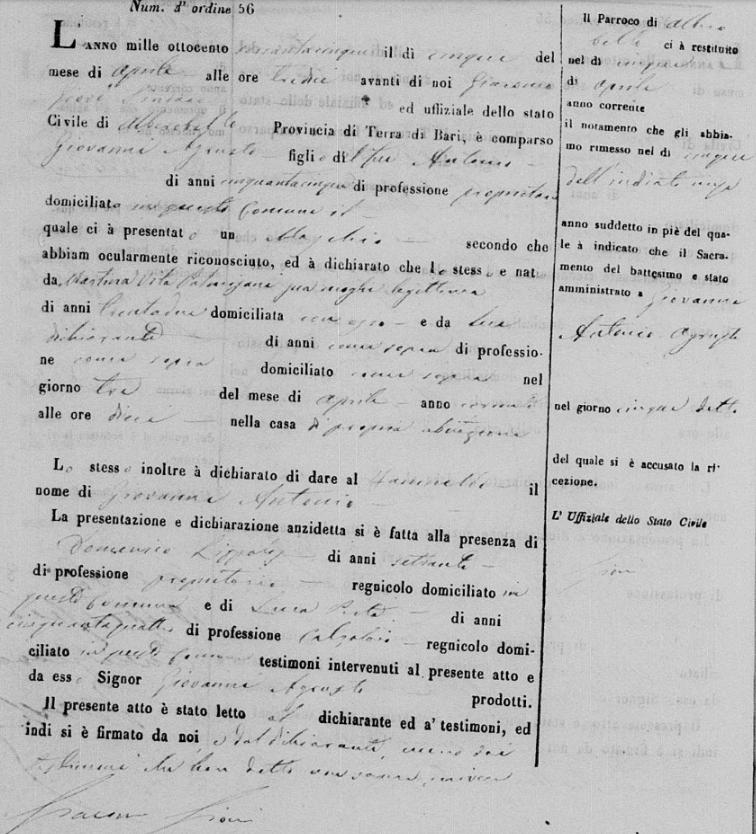 Num. d'ordine 56
L'ANNO mille ottocento quarantacinque il dì cinque del
mese di aprile alle ore tredici avanti di noi Giacomo
ed uffiziale dello stato
Civile di Provincia di Terra di Bari, è comparso
Giovanni Agrusta figlio di Antonio
di anni cinquantacinque di professione proprietario
domiciliato in questo Comune il
quale ci à presentato un Maschio secondo che
abbiam ocularmente riconosciuto, ed à dichiarato che lo stesso e nato
da Martina Vita sua moglie legittima
di anni trentadue domiciliata con esso e da
dichiarante di anni come sopra di professio-
ne come sopra domiciliato come sopra nel
giorno tre del mese di aprile anno corrente
alle ore dieci nella casa di propria abitazione
Lo stesso inoltre à dichiarato di dare al il
nome di Giovanni Antonio
La presentazione e dichiarazione anzidetta si è fatta alla presenza di
Domenico di anni settanta
di professione proprietario regnicolo domiciliato in
questo Comune e di Luca di anni
cinquantaquattro di professione Calzolaio regnicolo domi-
ciliato in questo Comune testimoni intervenuti al presente atto e
da esso Signor Giovanni Agrusta prodotti.
Il presente atto è stato letto al dichiarante ed a' testimoni, ed
indi si è firmato da noi, e dal dichiarante, meno dei
testimoni che han detto non sapere scrivere
Il Parroco di Albero
bello ci à restituito
nel dì cinque
di aprile
anno corrente
il notamento che gli abbia-
mo rimesso nel dì cinque
dell'indicato mese
anno suddetto in piè del qua-
le à indicato che il Sacra-
mento del battesimo e stato
amministrato a Giovanni
Antonio Agrusta
nel giorno cinque detto
del quale si è accusato la ri-
cezione.
L' Uffiziale dello Stato Civile